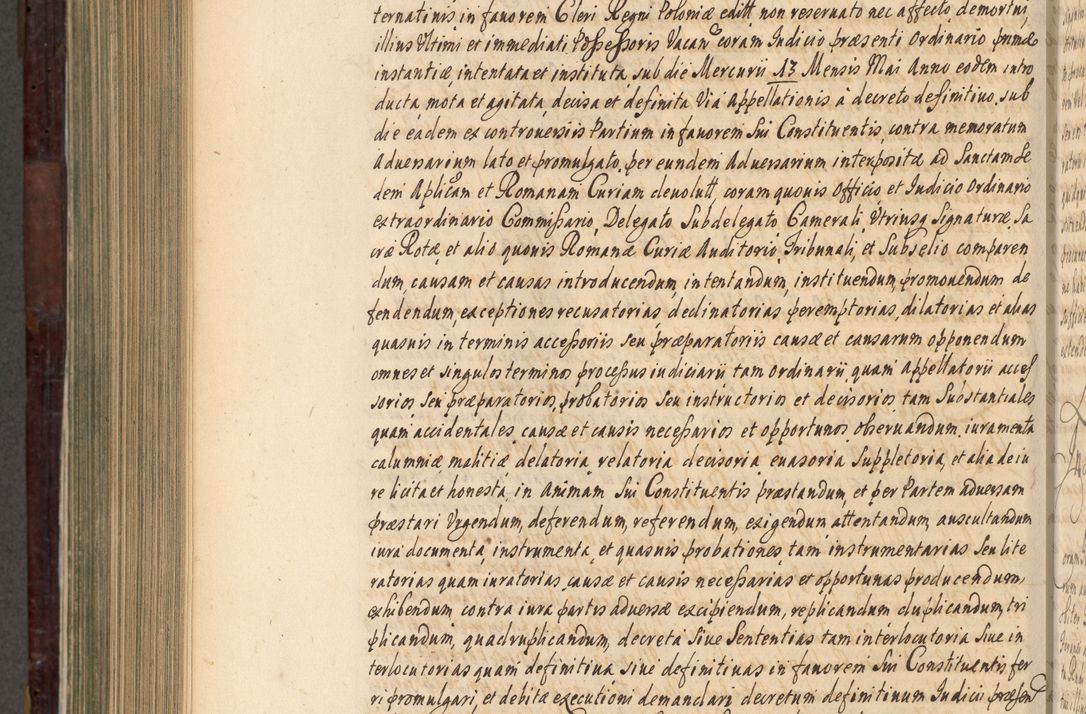 ternativis in favorem Cleri Regni Poloniæ editt non reservato nec affecto demortui
illius Ultimi et immediati Possessoris Vacan coram Iudicio præsenti Ordinario primæ
instantiæ intentata et instituta, sub die Mercurii 13 Mensis Mai Anno eodem intro
ducta, mota et agitata, decisa et definita Via Appellationis à decreto definitivo, sub
die eadem ex controversiis Partium in favorem Sui Constituentis, contra memoratum
Adversarium lato et promulgato, per eundem Adversarium interposita ad Sanctam Se
dem Aplicam et Romanam Curiam devolutt, coram quovis Officio, et Iudicio Ordinario
extraordinario Commissario, Delegato Subdelegato Camerali, Utriusq Signaturæ, Sa
cræ Rotæ, et alio quovis Romanæ Curiæ Auditorio, Tribunali, et Subselio comparen
dum, causam et causas introducendum, intentandum, instituendum, promovendum de
fendendum, exceptiones recusatorias, declinatorias peremptorias, dilatorias et alias
quasvis in terminis accessoriis seu præparatoriis causæ et causarum opponendum
omnes et singulos terminos processus iudiciarii, tam ordinarii, quam Appellatorii acces
sorios seu præparatorios, probatorios seu instructorios et decisorios tam Substantiales
quam accidentales causæ et causis necessarios et opportunos observandum, iuramenta
calumniæ, malitiæ delatoria, relatoria decisoria evasoria Suppletoria, et alia de iu
re licita et honesta, in Animam Sui Constituentis præstandum, et per Partem adversam
præstari Urgendum, deferendum, referendum, exigendum attentandum, auscultandum
iura documenta, instrumenta, et quasvis probationes tam instrumentarias Seu lite
ratorias quam iuratorias, causæ et causis necessarias et opportunas producendum,
exhibendum contra iura partis adversæ excipiendum, replicandum duplicandum, tri
plicandum, quadruplicandum, decreta Sive Sententias tam interlocutoria Sive in
terlocutorias quam definitiva sive definitivas in favorem Sui Constituentis fer
ri promulgari, et debitæ executioni demandari decretum definitivum Iudicii præsen